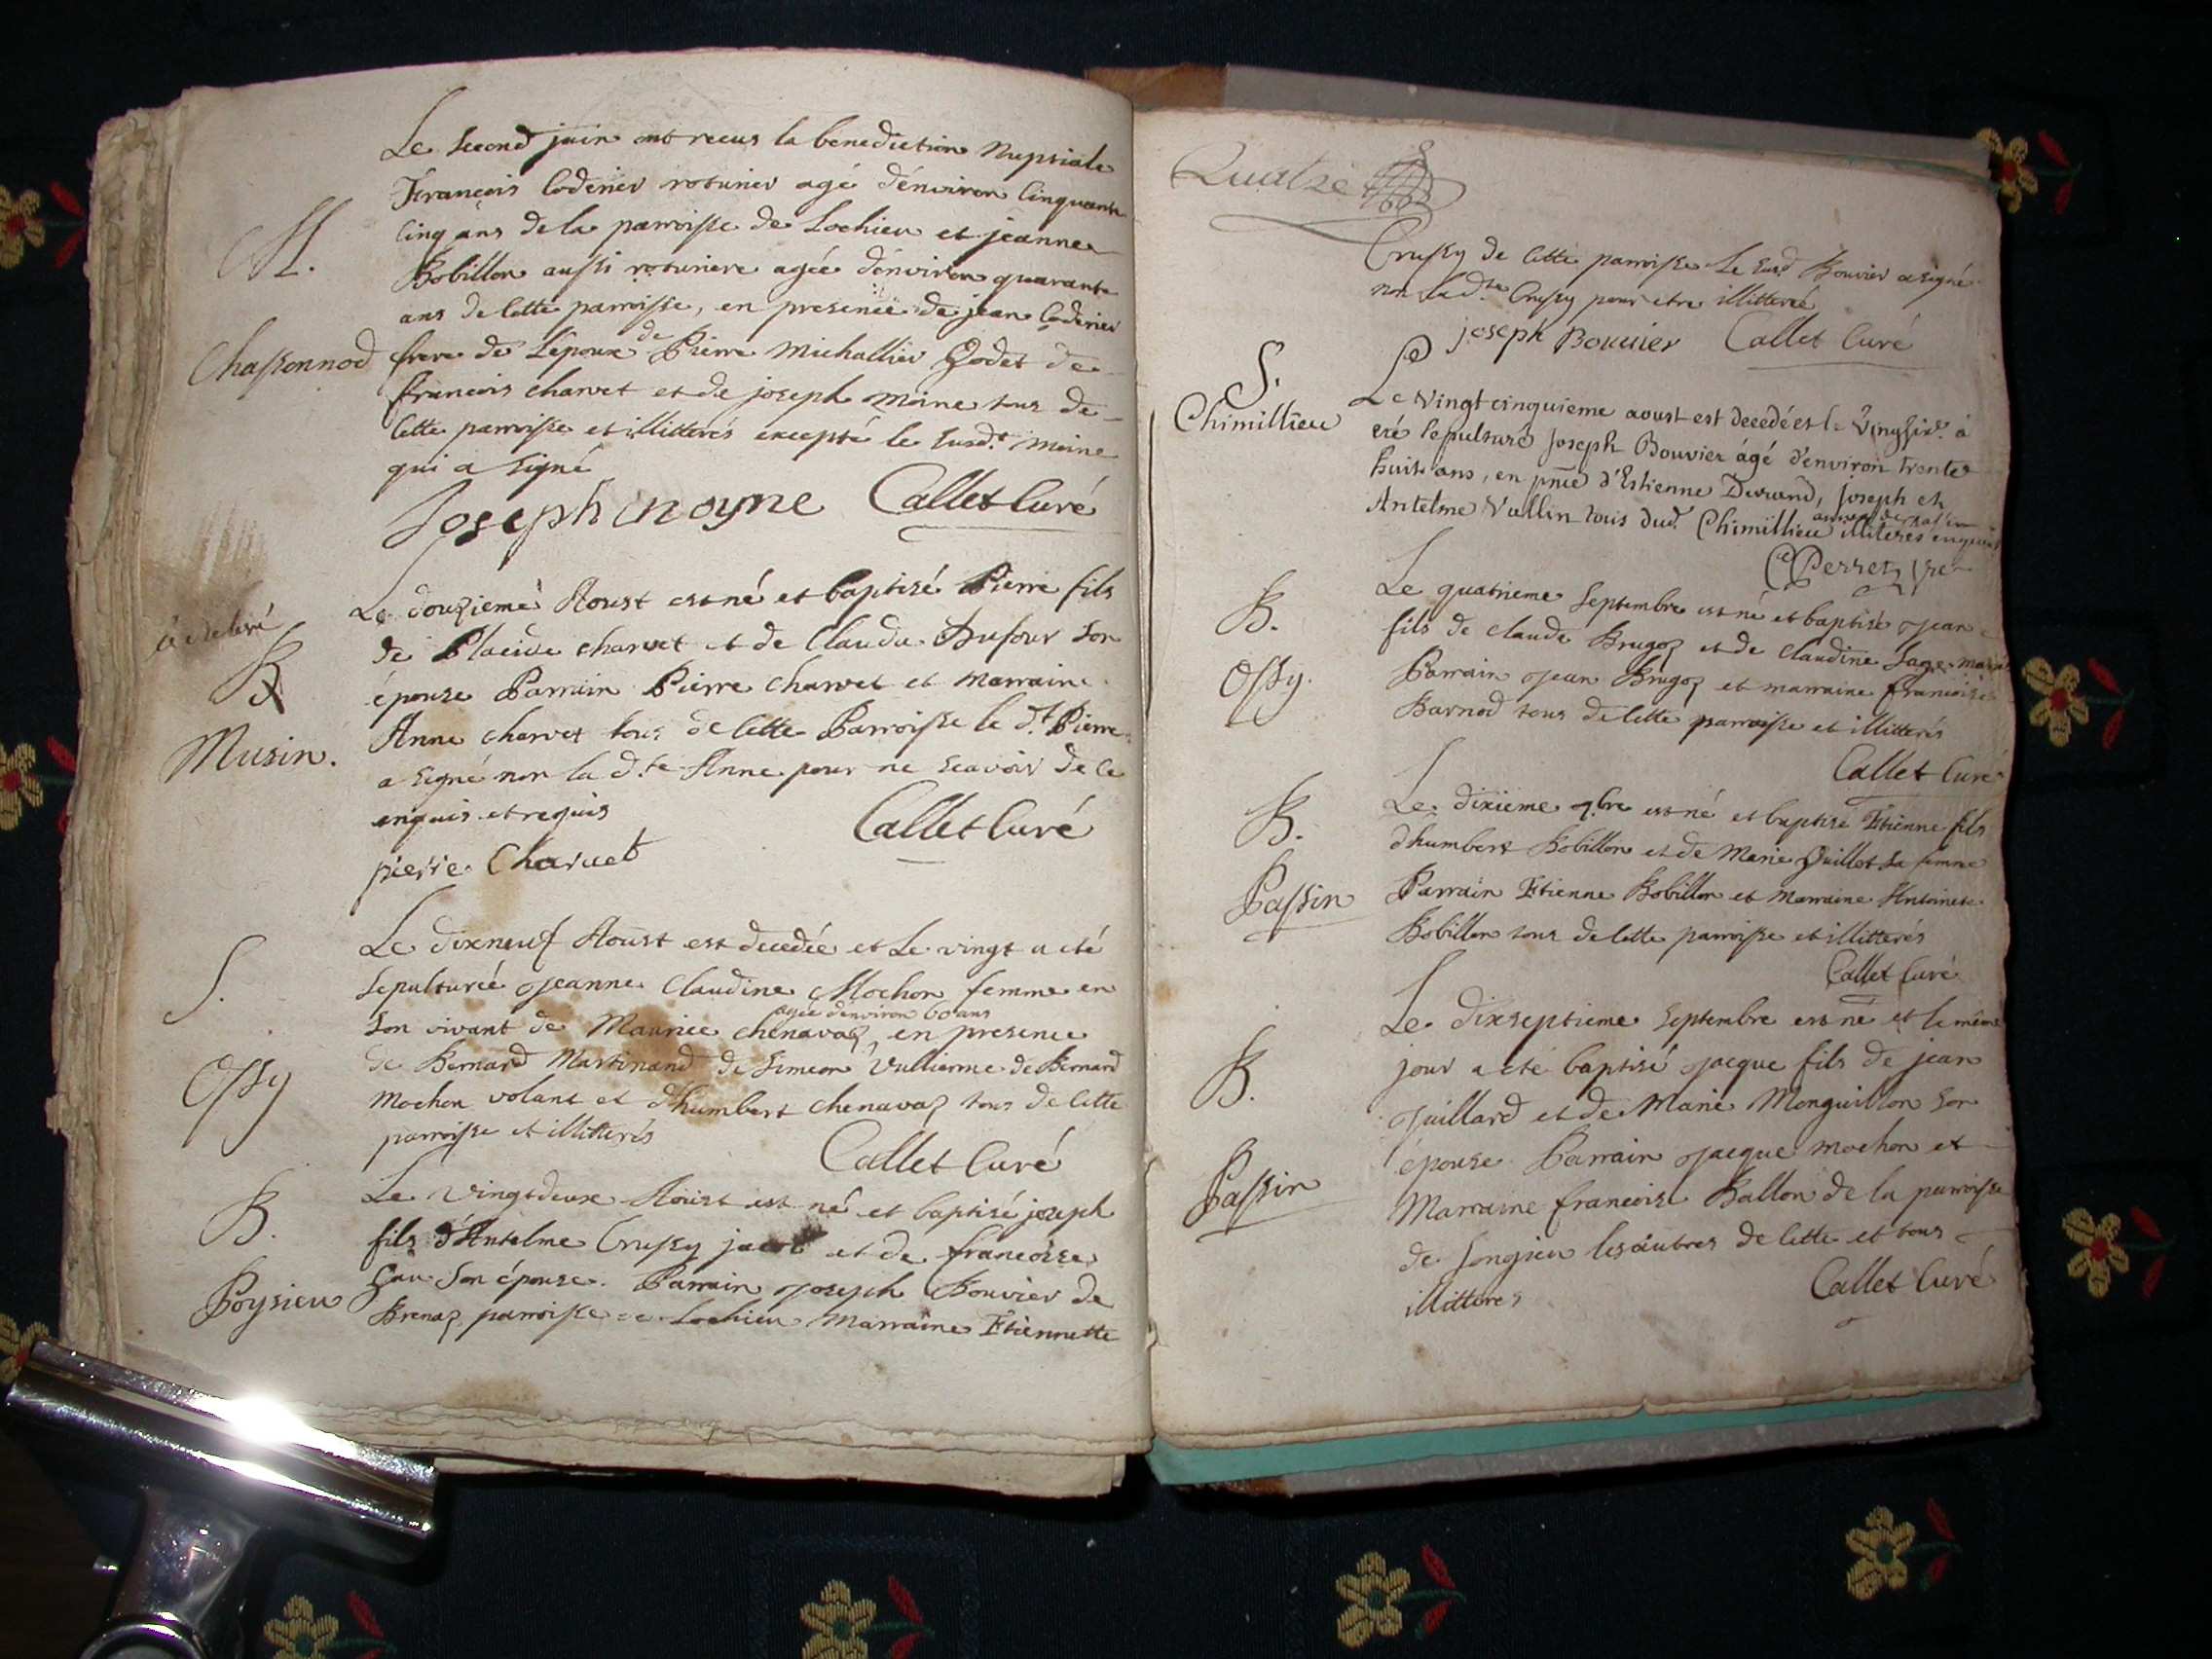 Le second juin ont recus la benediction Nuptiale
François Coderier roturier agé d'environ Cinquante
Cinq ans de la parroisse de Lochieu et jeanne
M.
Bobillon aussi roturiere agée d'environ quarante
ans de Cette parroisse, en presence de jean Coderier
Chassonnod
frere de L'epoux de Pierre Michallier Godet de
françois charvet et de joseph Moine tous de
Cette parroisse et illitterés excepté le susd.t Moine
qui a signé
Joseph moyne Callet Curé
Le douzieme Aoust est né et baptisé Pierre fils
a eté délivré
de Placide charvet et de Claudu Dufour son
B
épouse Parrain Pierre charvet et Marraine
Anne charvet tous de Cette Parroisse le d.t Pierre
Musin.
a signé non la d.te Anne pour ne scavoir de ce
enquis et requis Callet Curé
pierre Charuet
Le dixneuf Aoust est decedée et Le vingt a eté
S.
sepulturée jeanne Claudine Mochon femme en
agée d'environ 60 ans
son vivant de Maurice chenavaz, en presence
de Bernard Martinand de Simeon Vullierme de Bernard
Ossy
Mochon volant et d'humbert chenavaz tous de Cette
parroisse et illitterés
Callet Curé
Le vingtdeux Aoust est né et baptisé joseph
B.
fils d'Antelme Crussy et de francoise
son épouse. Parrain joseph Bouvier de
Poysieu
Brenaz parroisse de Lochieu Marraine Etiennette
Quatre
Crussy de Cette parroisse Le susd Bouvier a signé
non la d.te Crussy pour etre illitterée
joseph Bouuier Callet Curé
S.
Le vingt cinquieme aoust est decedé et le vingsix.e à
Chimillieu
eté sepulturé Joseph Bouvier âgé d'environ trente
huit ans, en pnce d'Estienne Durand, Joseph et
Antelme Vullin tous dud. Chimillieu illiterés enquis
Perret
Le quatrieme septembre est né et baptisé jean
B.
fils de claude Brugoz et de Claudine Sage mariés
Ossy.
Parrain jean Brugoz et marraine francoise
Barnod tous de Cette parroisse et illitterés
Callet Curé
Le dixieme 7.bre est né et baptisé Etienne fils
B.
d'humbert Bobillon et de Marie Guillot sa femme
Passin
Parrain Etienne Bobillon et Marraine Antoinete
Bobillon tous de Cette parroisse et illitterés
Callet Curé
Le dixseptieme septembre est né et le même
jour a eté baptisé jacque fils de jean
B.
juillard et de Marie Monguillon son
épouse Parrain jacque Mochon et
Passin
Marraine francoise Ballon de la parroisse
de songieu les autres de Cette et tous
illitterés Callet Curé